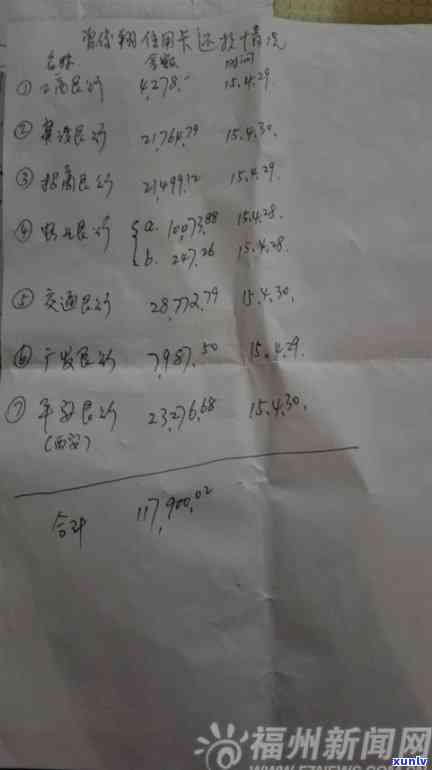 信用卡还款情况
名称 金额 时间
① 工商银行 4,278.- 15.4.29.
② 建设银行 21,764.79 15.4.30.
③ 招商银行 21,499.12 15.4.29.
④ 兴业银行 { a. 10,073.88 15.4.28.
b. 247.26 15.4.28.
⑤ 交通银行 28,772.79 15.4.30.
⑥ 广发银行 7,987.50 15.4.29.
⑦ 平安银行 23,276.68 15.4.30.
合计 117,900.02
福州新闻网
WWW.FZNEWS.COM.CN
xunlv